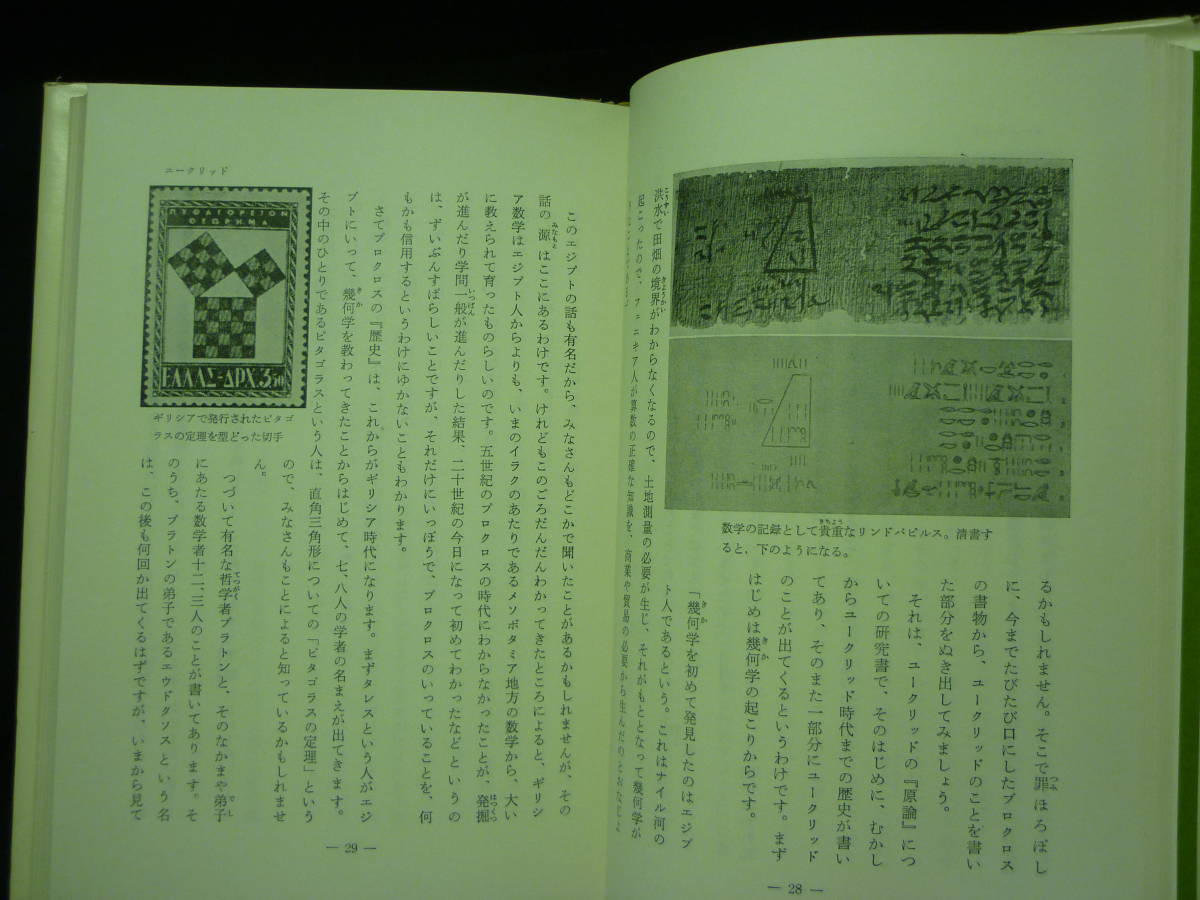 数学の記録として貴重なリンドパピルス。清書す
ると、下のようになる。
るかもしれません。そこで罪ほろぼし
に、今までたびたび口にしたプロクロス
の書物から、ユークリッドのことを書い
た部分をぬき出してみましょう。
それは、ユークリッドの『原論』につ
いての研究書で、そのはじめに、むかし
からユークリッド時代までの歴史が書い
てあり、そのまた一部分にユークリッド
のことが出てくるというわけです。まず
はじめは幾何学の起こりからです。
「幾何学を初めて発見したのはエジプ
ト人であるという。これはナイル河の
洪水で田畑の境界がわからなくなるので、土地測量の必要が生じ、それがもとなって幾何学が
起こったので、フェニキア人が算数の正確な知識を、商業や貿易の必要から生んだのとおなじよ
— 28 —
ユークリッド
このエジプトの話も有名だから、みなさんもどこかで聞いたことがあるかもしれませんが、その
話の源はここにあるわけです。けれどもこのごろだんだんわかってきたところによると、ギリシ
ア数学はエジプト人からよりも、いまのイラクのあたりであるメソポタミア地方の数学から、大い
に教えられて育ったものらしいのです。五世紀のプロクロスの時代にわからなかったことが、発掘
が進んだり学問一般が進んだりした結果、二十世紀の今日になって初めてわかったなどというの
は、ずいぶんすばらしいことですが、それだけにいっぽうで、プロクロスのいっていることを、何
もかも信用するというわけにゆかないこともわかります。
さてプロクロスの『歴史』は、これからがギリシア時代になります。まずタレスという人がエジ
プトにいって、幾何学を教わってきたことからはじめて、七、八人の学者の名まえが出てきます。
その中のひとりであるピタゴラスという人は、直角三角形についての「ピタゴラスの定理」という
ので、みなさんもことによると知っているかもしれませ
ん。
つづいて有名な哲学者プラトンと、そのなかまや弟子
にあたる数学者十二、三人のことが書いてあります。そ
のうち、プラトンの弟子であるエウドクソスという名
は、この後も何回か出てくるはずですが、いまから見て
ΠΥΘΑΓΟΡΕΙΟΝ
ΘΕΩΡΗΜΑ
ΕΛΛΑΣ-ΔΡΧ.3.50
ギリシアで発行されたピタゴ
ラスの定理を型どった切手
— 29 —